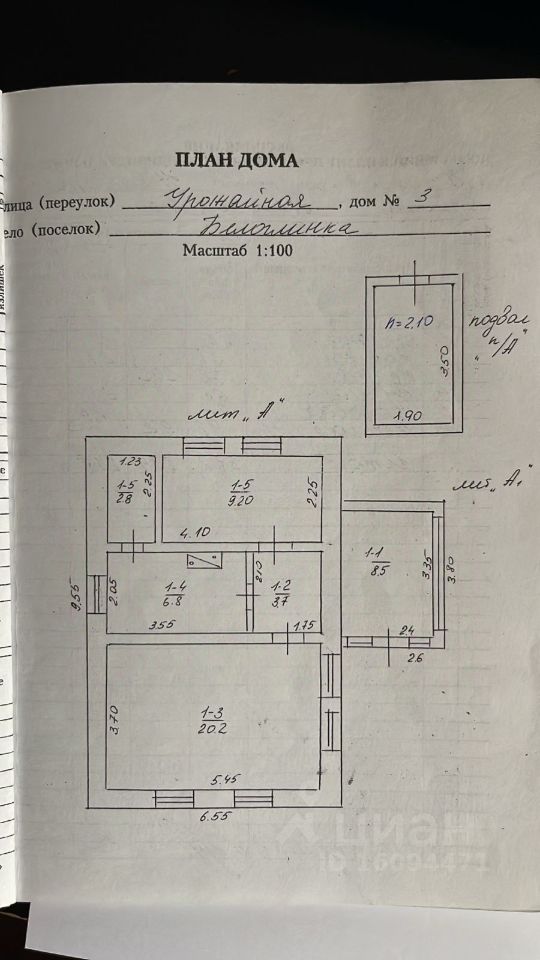 ПЛАН ДОМА
лица (переулок) Урожайная, дом № 3
ело (поселок) Белоглинка
Масштаб 1:100
h=2.10
подвал
"п/А"
3.50
1.90
лит "А"
лит "А₁"
1.23
1-5
2.8
2.25
1-5
9.20
2.25
4.10
1-1
8.5
3.35
3.80
9.55
2.05
1-4
6.8
2.10
1-2
3.7
3.55
1.75
2.4
2.6
3.70
1-3
20.2
5.45
6.55
ЦИАН